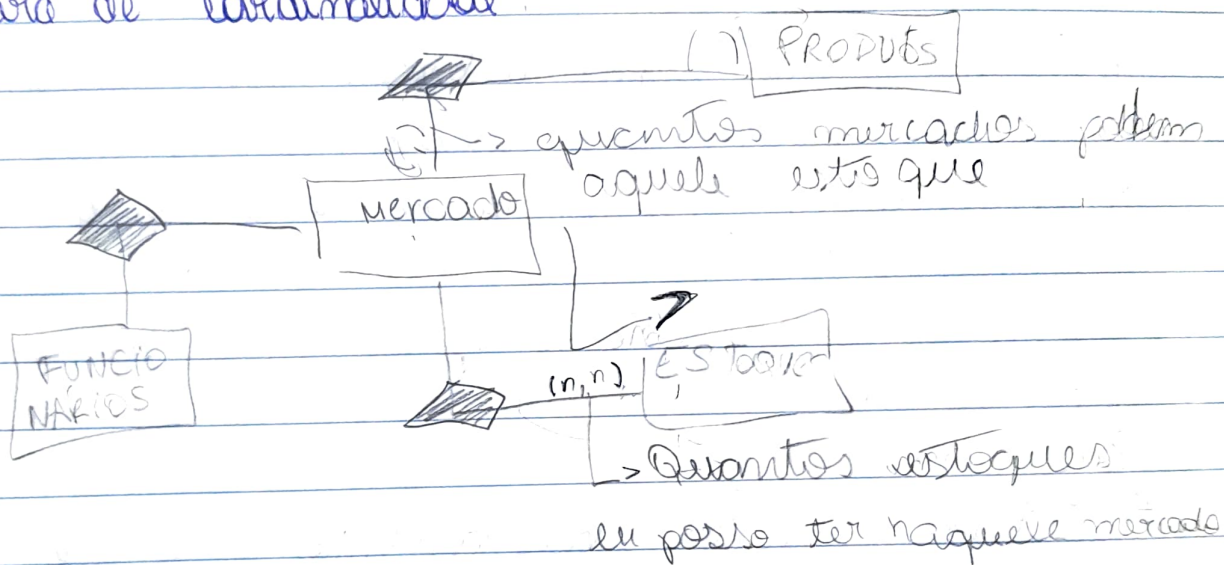 de cardinalidade
( ) PRODUtS
-> quantos mercados podem
aquele estoque
Mercado
FUNCIO
NÁRIOS
(n,n)
EStoque
-> Quantos estoques
eu posso ter naquele mercado